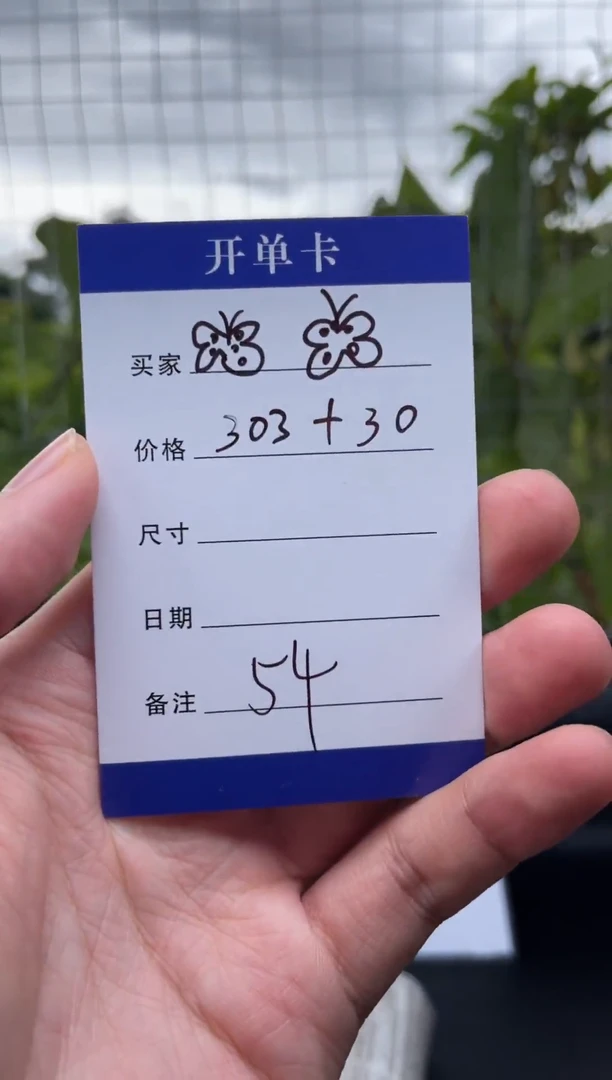 开单卡
买家
价格 303+30
尺寸
日期
备注 54